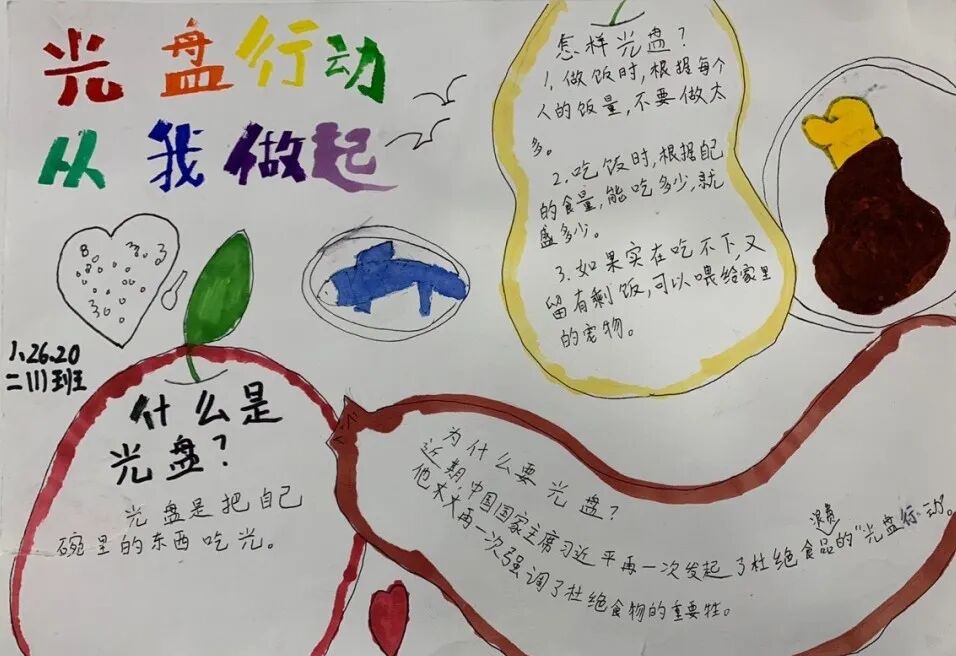 光盘行动
从我做起
1、26.20
二(1)班
什么是
光盘？
光盘是把自己
碗里的东西吃光。
怎样光盘？
1、做饭时,根据每个
人的饭量,不要做太
多。
2、吃饭时,根据自己
的食量,能吃多少,就
盛多少。
3、如果实在吃不下,又
留有剩饭,可以喂给家里
的宠物。
为什么要光盘？
近期,中国国家主席习近平再一次发起了杜绝浪费食品的"光盘行动"。
他大大再一次强调了杜绝食物的重要性。